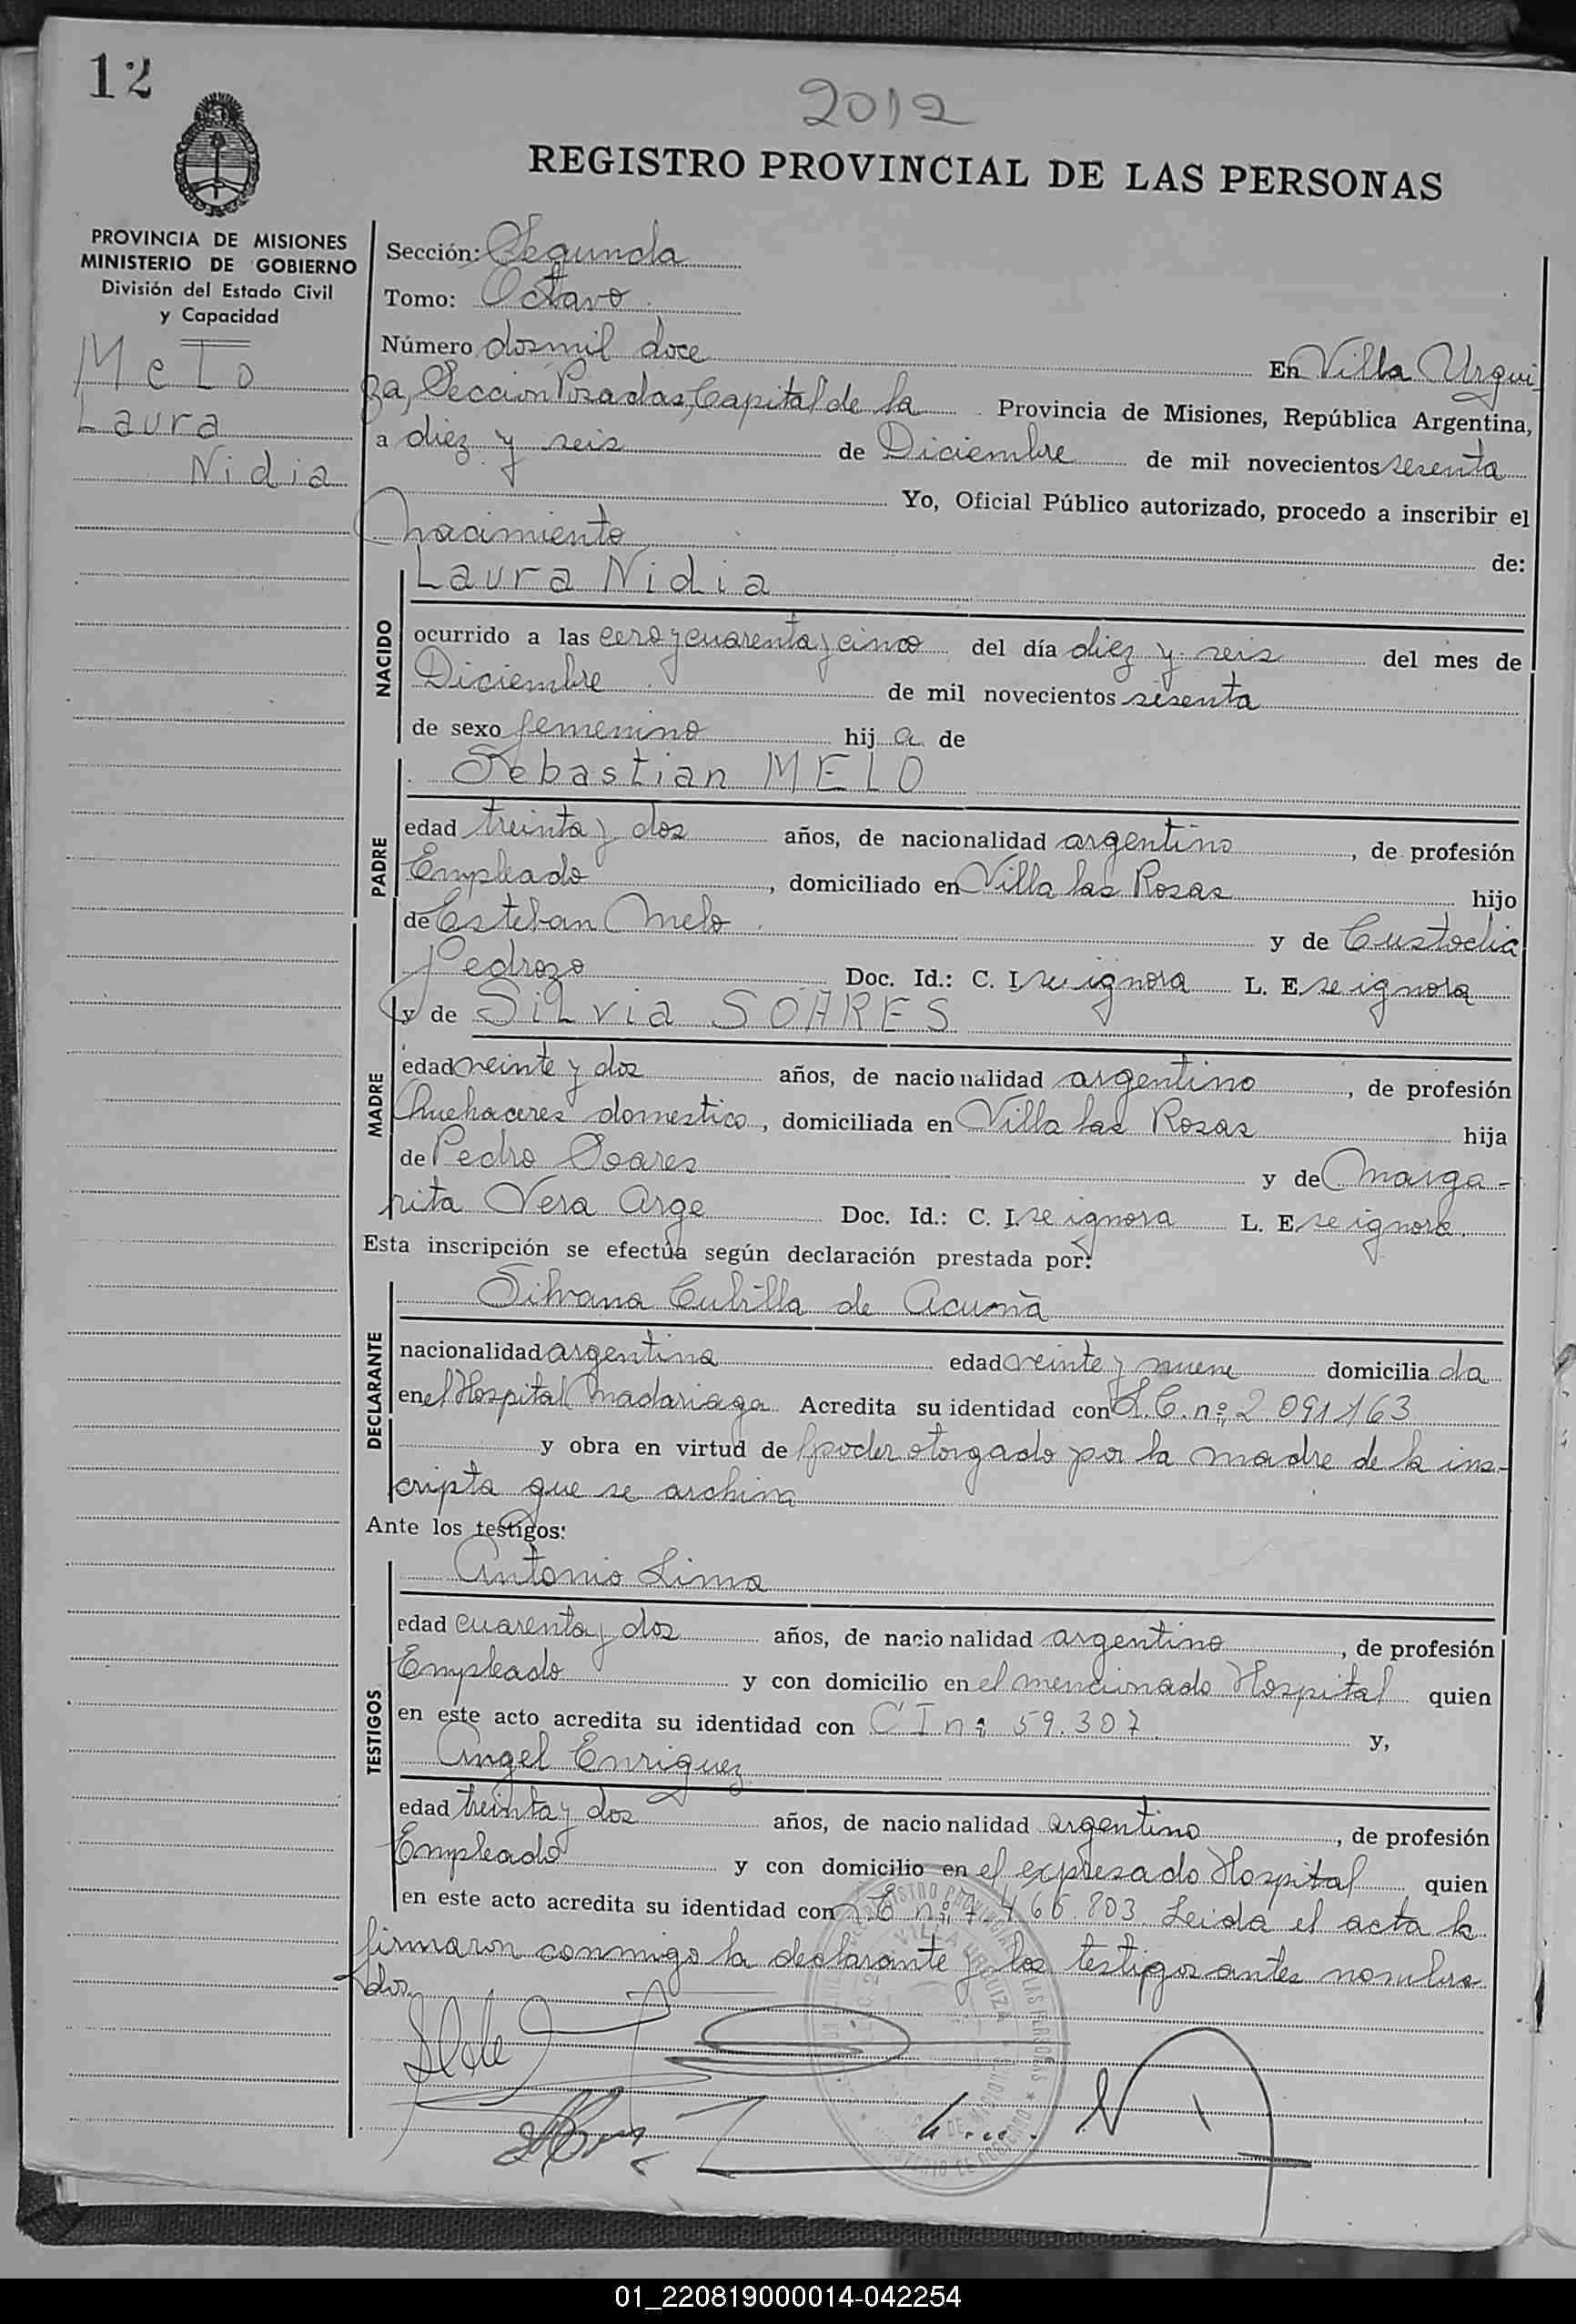 12
2012
REGISTRO PROVINCIAL DE LAS PERSONAS
PROVINCIA DE MISIONES
MINISTERIO DE GOBIERNO
División del Estado Civil
y Capacidad
Melo
Laura
Nidia
Sección: Segunda
Tomo: Octavo
Número dosmil doce En Villa Urqui
za, Seccion Posadas, Capital de la Provincia de Misiones, República Argentina,
a diez y seis de Diciembre de mil novecientos sesenta
Yo, Oficial Público autorizado, procedo a inscribir el
Nacimiento de:
Laura Nidia
NACIDO
ocurrido a las cero y cuarenta y cinco del día diez y seis del mes de
Diciembre de mil novecientos sesenta
de sexo femenino hij a de
Sebastian MELO
PADRE
edad treinta y dos años, de nacionalidad argentino, de profesión
Empleado, domiciliado en Villa las Rosas hijo
de Esteban Melo y de Custodia
Pedrozo Doc. Id.: C. I. se ignora L. E. se ignora
y de SiLvia SOARES
MADRE
edad veinte y dos años, de nacionalidad argentino, de profesión
Quehaceres domestico, domiciliada en Villa las Rosas hija
de Pedro Soares y de Marga-
rita Vera Arge Doc. Id.: C. I. se ignora L. E. se ignora.
Esta inscripción se efectúa según declaración prestada por:
Silvana Cubilla de Acuña
DECLARANTE
nacionalidad argentina edad veinte y nueve domicilia da
en el Hospital Madariaga Acredita su identidad con L.C. nº 2.091163
y obra en virtud de poder otorgado por la madre de la ins-
cripta que se archiva
Ante los testigos:
Antonio Lima
TESTIGOS
edad cuarenta y dos años, de nacionalidad argentino, de profesión
Empleado y con domicilio en el mencionado Hospital quien
en este acto acredita su identidad con C I nº 59.307 y,
Angel Enriquez
edad treinta y dos años, de nacionalidad argentino, de profesión
Empleado y con domicilio en el expresado Hospital quien
en este acto acredita su identidad con L.E nº 7.466.803. Leida el acta la
firmaron conmigo la declarante y los testigos antes nombra
dos.
VILLA URQUIZA
01_220819000014-042254